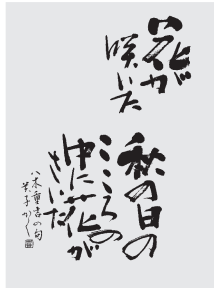 花が
咲いた
秋の日の
こころの
中に花が
さいた
八木重吉の句